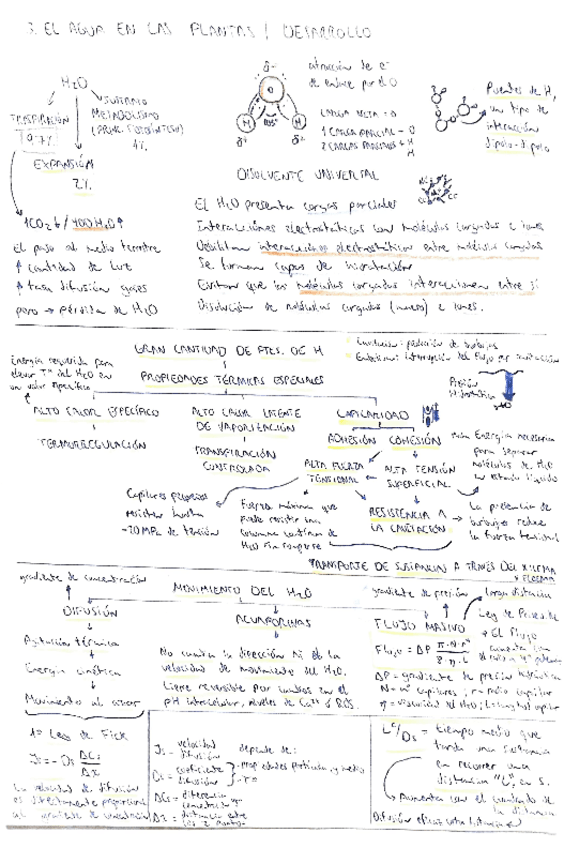 3. EL AGUA EN LAS PLANTAS / DESARROLLO
H2O
TRASPIRACIÓN
97%
SUSTRATO
METABOLISMO
1%
EXPANSIÓN
2%
atracción de e-
de enlace por el O
δ-
O
H
H
105°
δ+
δ+
CARGA NETA = 0
1 CARGA PARCIAL - O
2 CARGAS PARCIALES + H
H
Puentes de H,
un tipo de
interacción
dipolo-dipolo
DISOLVENTE UNIVERSAL
1CO2 ↓ / 400 H2O ↑
El paso al medio terrestre
↑ cantidad de luz
↑ tasa difusión gases
pero → pérdida de H2O
El H2O presenta cargas parciales
Interacciones electrostáticas con moléculas cargadas e iones
Debilitan interacciones electrostáticas entre moléculas cargadas
Se forman capas de hidratación
Evitan que las moléculas cargadas interaccionen entre sí
Disolución de moléculas cargadas e iones.
GRAN CANTIDAD DE PTES. DE H
PROPIEDADES TÉRMICAS ESPECIALES
Energía requerida para
elevar Tª del H2O en
un valor específico
Cavitación: producción de burbujas
Embolismo: interrupción del flujo por cavitación
Presión
Hidrostática
ALTO CALOR ESPECÍFICO
TERMORREGULACIÓN
ALTO CALOR LATENTE
DE VAPORIZACIÓN
TRANSPIRACIÓN
CONTROLADA
CAPILARIDAD
ADHESIÓN
COHESIÓN
ALTA FUERZA
TENSIONAL
ALTA TENSIÓN
SUPERFICIAL
RESISTENCIA A
LA CAVITACIÓN
Energía necesaria
para separar
moléculas de H2O
en estado líquido
Capilares pequeños
resisten hasta
-20 MPa de tensión
Fuerza máxima que
puede resistir una
columna continua de
H2O sin romperse
La presencia de
burbujas reduce
la fuerza tensional
TRANSPORTE DE SUSTANCIAS A TRAVÉS DEL XILEMA
Y FLOEMA
gradiente de concentración
MOVIMIENTO DEL H2O
gradiente de presión
larga distancia
DIFUSIÓN
Agitación térmica
Energía cinética
Movimiento al azar
ACUAPORINAS
No cambia la dirección ni el la
velocidad de movimiento del H2O.
Cierre reversible por cambios en el
pH intracelular, niveles de Ca2+ ó ROS.
FLUJO MASIVO
Flujo = ΔP π·N·r4 / 8·η·L
Ley de Poiseuille
El flujo
aumenta con
ΔP = gradiente de presión hidrostática
N = nº capilares; r = radio capilar
η = viscosidad del H2O; L = longitud capilar
1ª Ley de Fick
Js = -Ds ΔCs / Δx
La velocidad de difusión
es directamente proporcional
al gradiente de concentración
Js = velocidad
difusión
Ds = coeficiente
difusión
depende de:
- propiedades partícula y medio
- Tª
ΔCs = diferencia
concentración
Δx = distancia entre
los 2 puntos
L2/Ds = tiempo medio que
tarda una sustancia
en recorrer una
distancia "L", en s.
Aumenta con el cuadrado de
la distancia
Difusión eficaz corta distancia